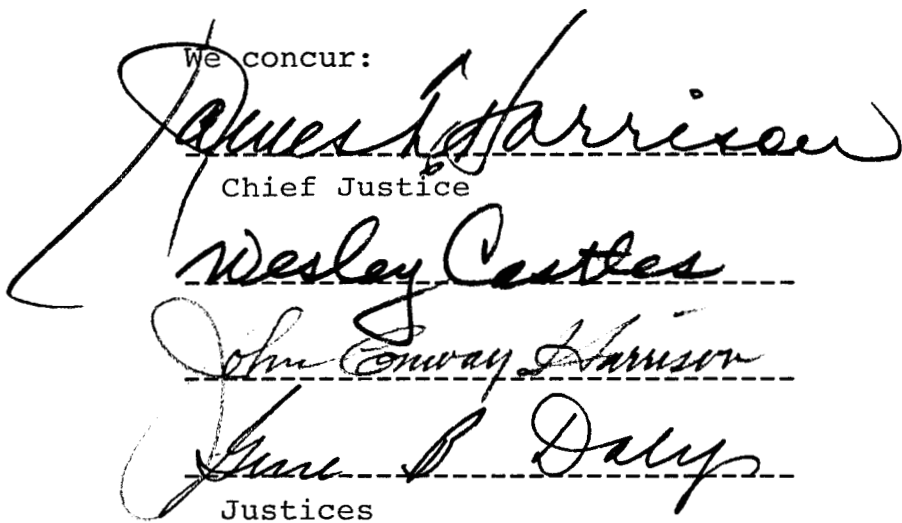 We concur:
James T. Harrison
Chief Justice
Wesley Castles
John Conway Harrison
Gene B Daly
Justices